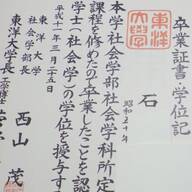 卒業証書・学位記
東洋大學
石
昭和三十年
本学社会学部社会学科所定
課程を修めたので卒業したことを認
学士（社会学）の学位を授与す
平成十 年三月二十五日
東洋大学
社会学部長
西山 茂
東洋大学長